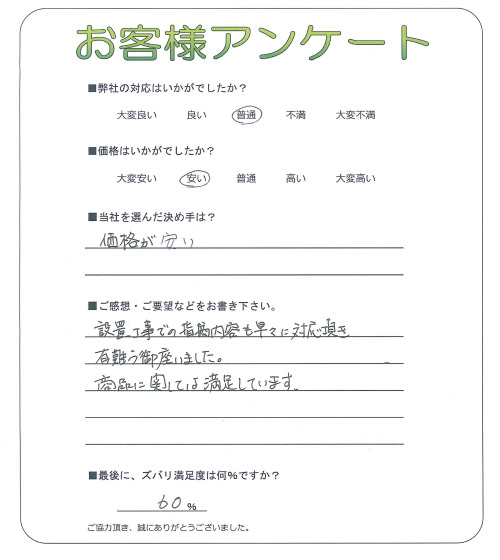 お客様アンケート
■弊社の対応はいかがでしたか？
大変良い 良い 普通 不満 大変不満
■価格はいかがでしたか？
大変安い 安い 普通 高い 大変高い
■当社を選んだ決め手は？
価格が安い
■ご感想・ご要望などをお書き下さい。
設置工事での指摘内容も早々に対応頂き
有難う御座いました。
商品に関しては満足しています。
■最後に、ズバリ満足度は何%ですか？
60 %
ご協力頂き、誠にありがとうございました。